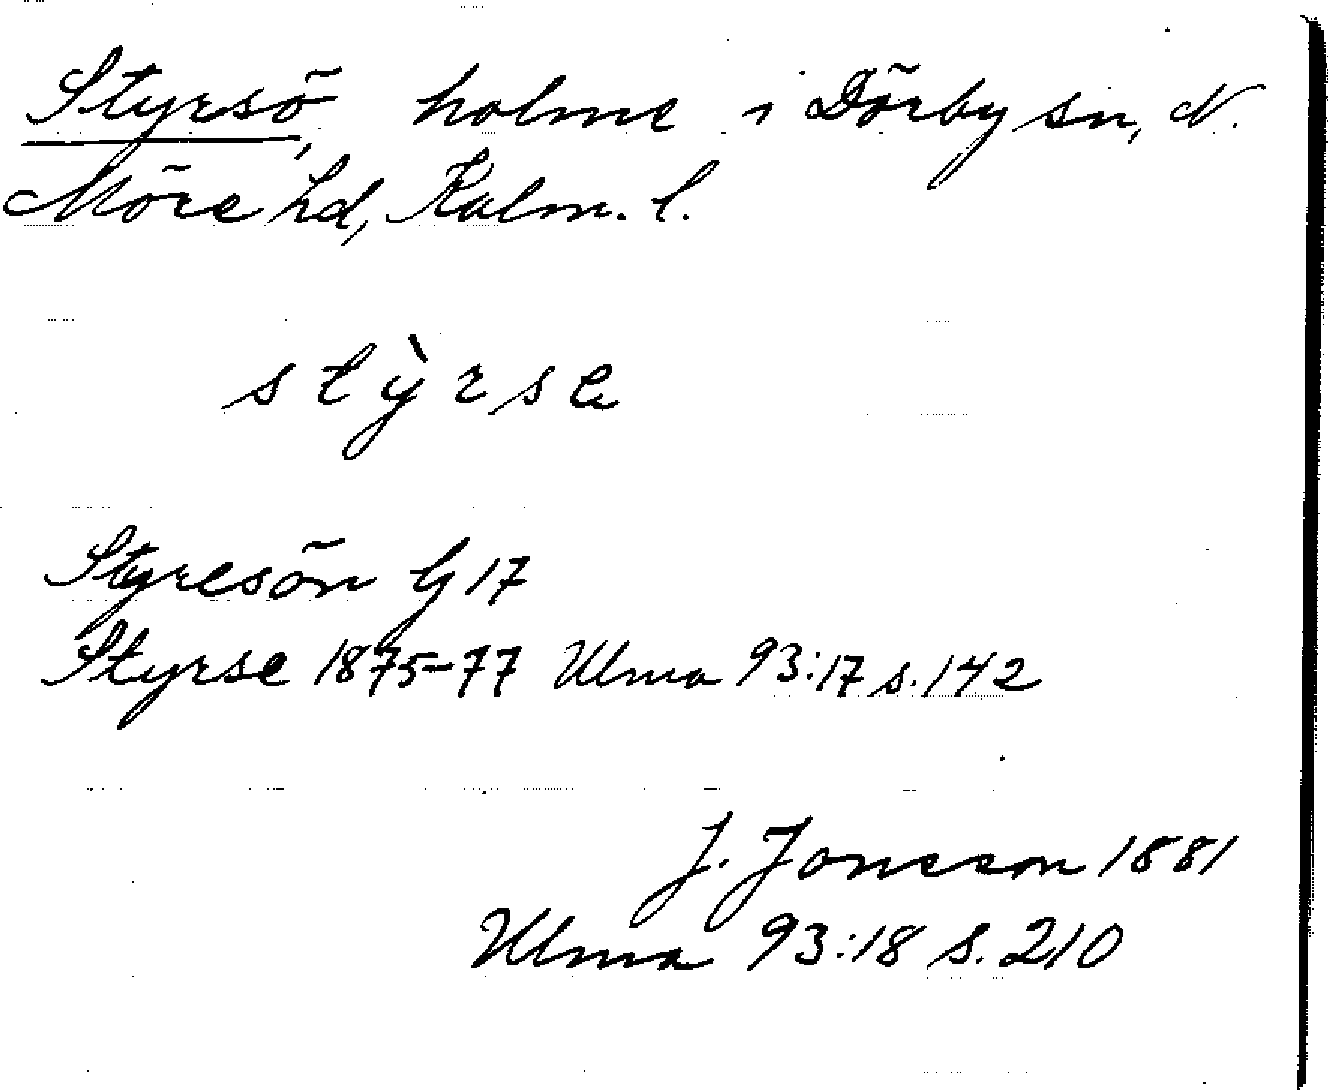 Styrsö, holme i Dörby sn, N.
Möre hd, Kalm. l.
stỳrse
Styresön G 17
Styrse 1875-77 Ulma 93:17 s. 142
J. Jonsson 1881
Ulma 93:18 s. 210